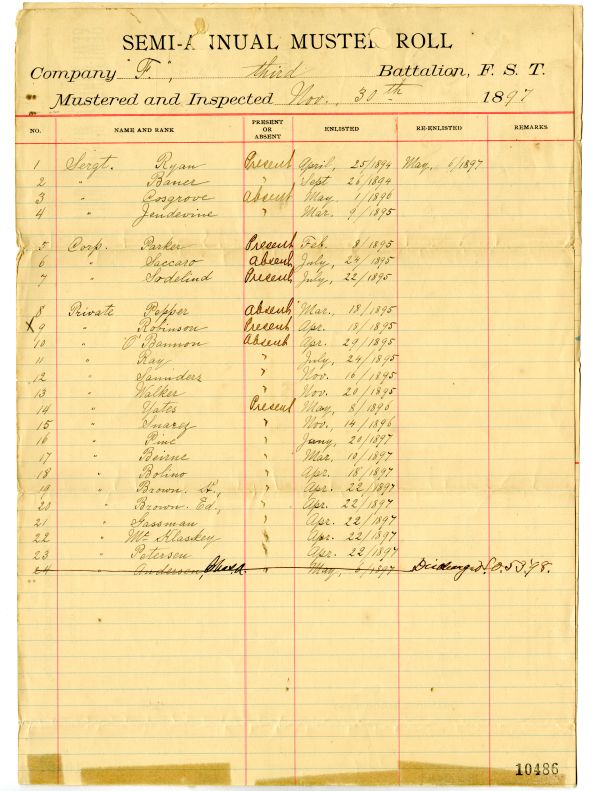 SEMI-ANNUAL MUSTER ROLL
Company "F.", third Battalion, F. S. T.
Mustered and Inspected Nov. 30th 1897
NO. NAME AND RANK PRESENT OR ABSENT ENLISTED RE-ENLISTED REMARKS
1 Sergt. Ryan Present April, 25/1894 May, 6/1897
2 " Bauer " Sept 26/1894
3 " Cosgrove absent May 1/1896
4 " Jendevine " Mar. 9/1895
5 Corp. Parker Present Feb. 8/1895
6 " Saccaro absent July, 24/1895
7 " Sodelind Present July, 22/1895
8 Private Pepper absent Mar., 18/1895
X 9 " Robinson Present Apr. 18/1895
10 " O'Bannon Absent Apr. 29/1895
11 " Ray " July, 24/1895
12 " Saunders " Nov. 16/1895
13 " Walker " Nov. 20/1895
14 " Yates Present May, 8/1896
15 " Snarez " Nov., 14/1896
16 " Pine " Jany, 20/1897
17 " Beirne " Mar, 10/1897
18 " Bolino " Apr. 18/1897
19 " Brown. H., " Apr. 22/1897
20 " Brown. Ed., " Apr. 22/1897
21 " Gassman " Apr. 22/1897
22 " Mc Klaskey " Apr. 22/1897
23 " Petersen " Apr. 22/1897
24 " Andersen, Chas. A. " May, 6/1897 Discharged S.O. 53/98.
10486